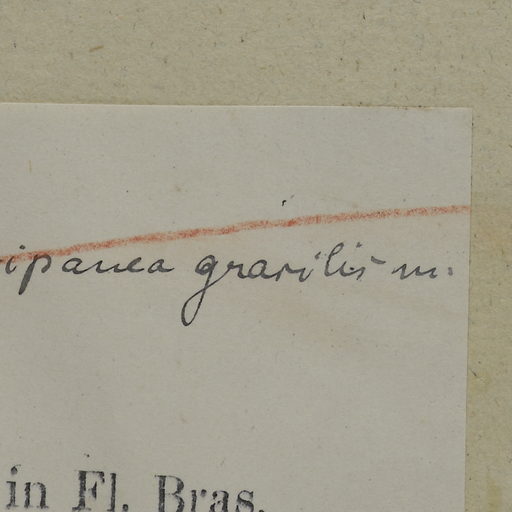 ipanea gracilis m.
in Fl. Bras.